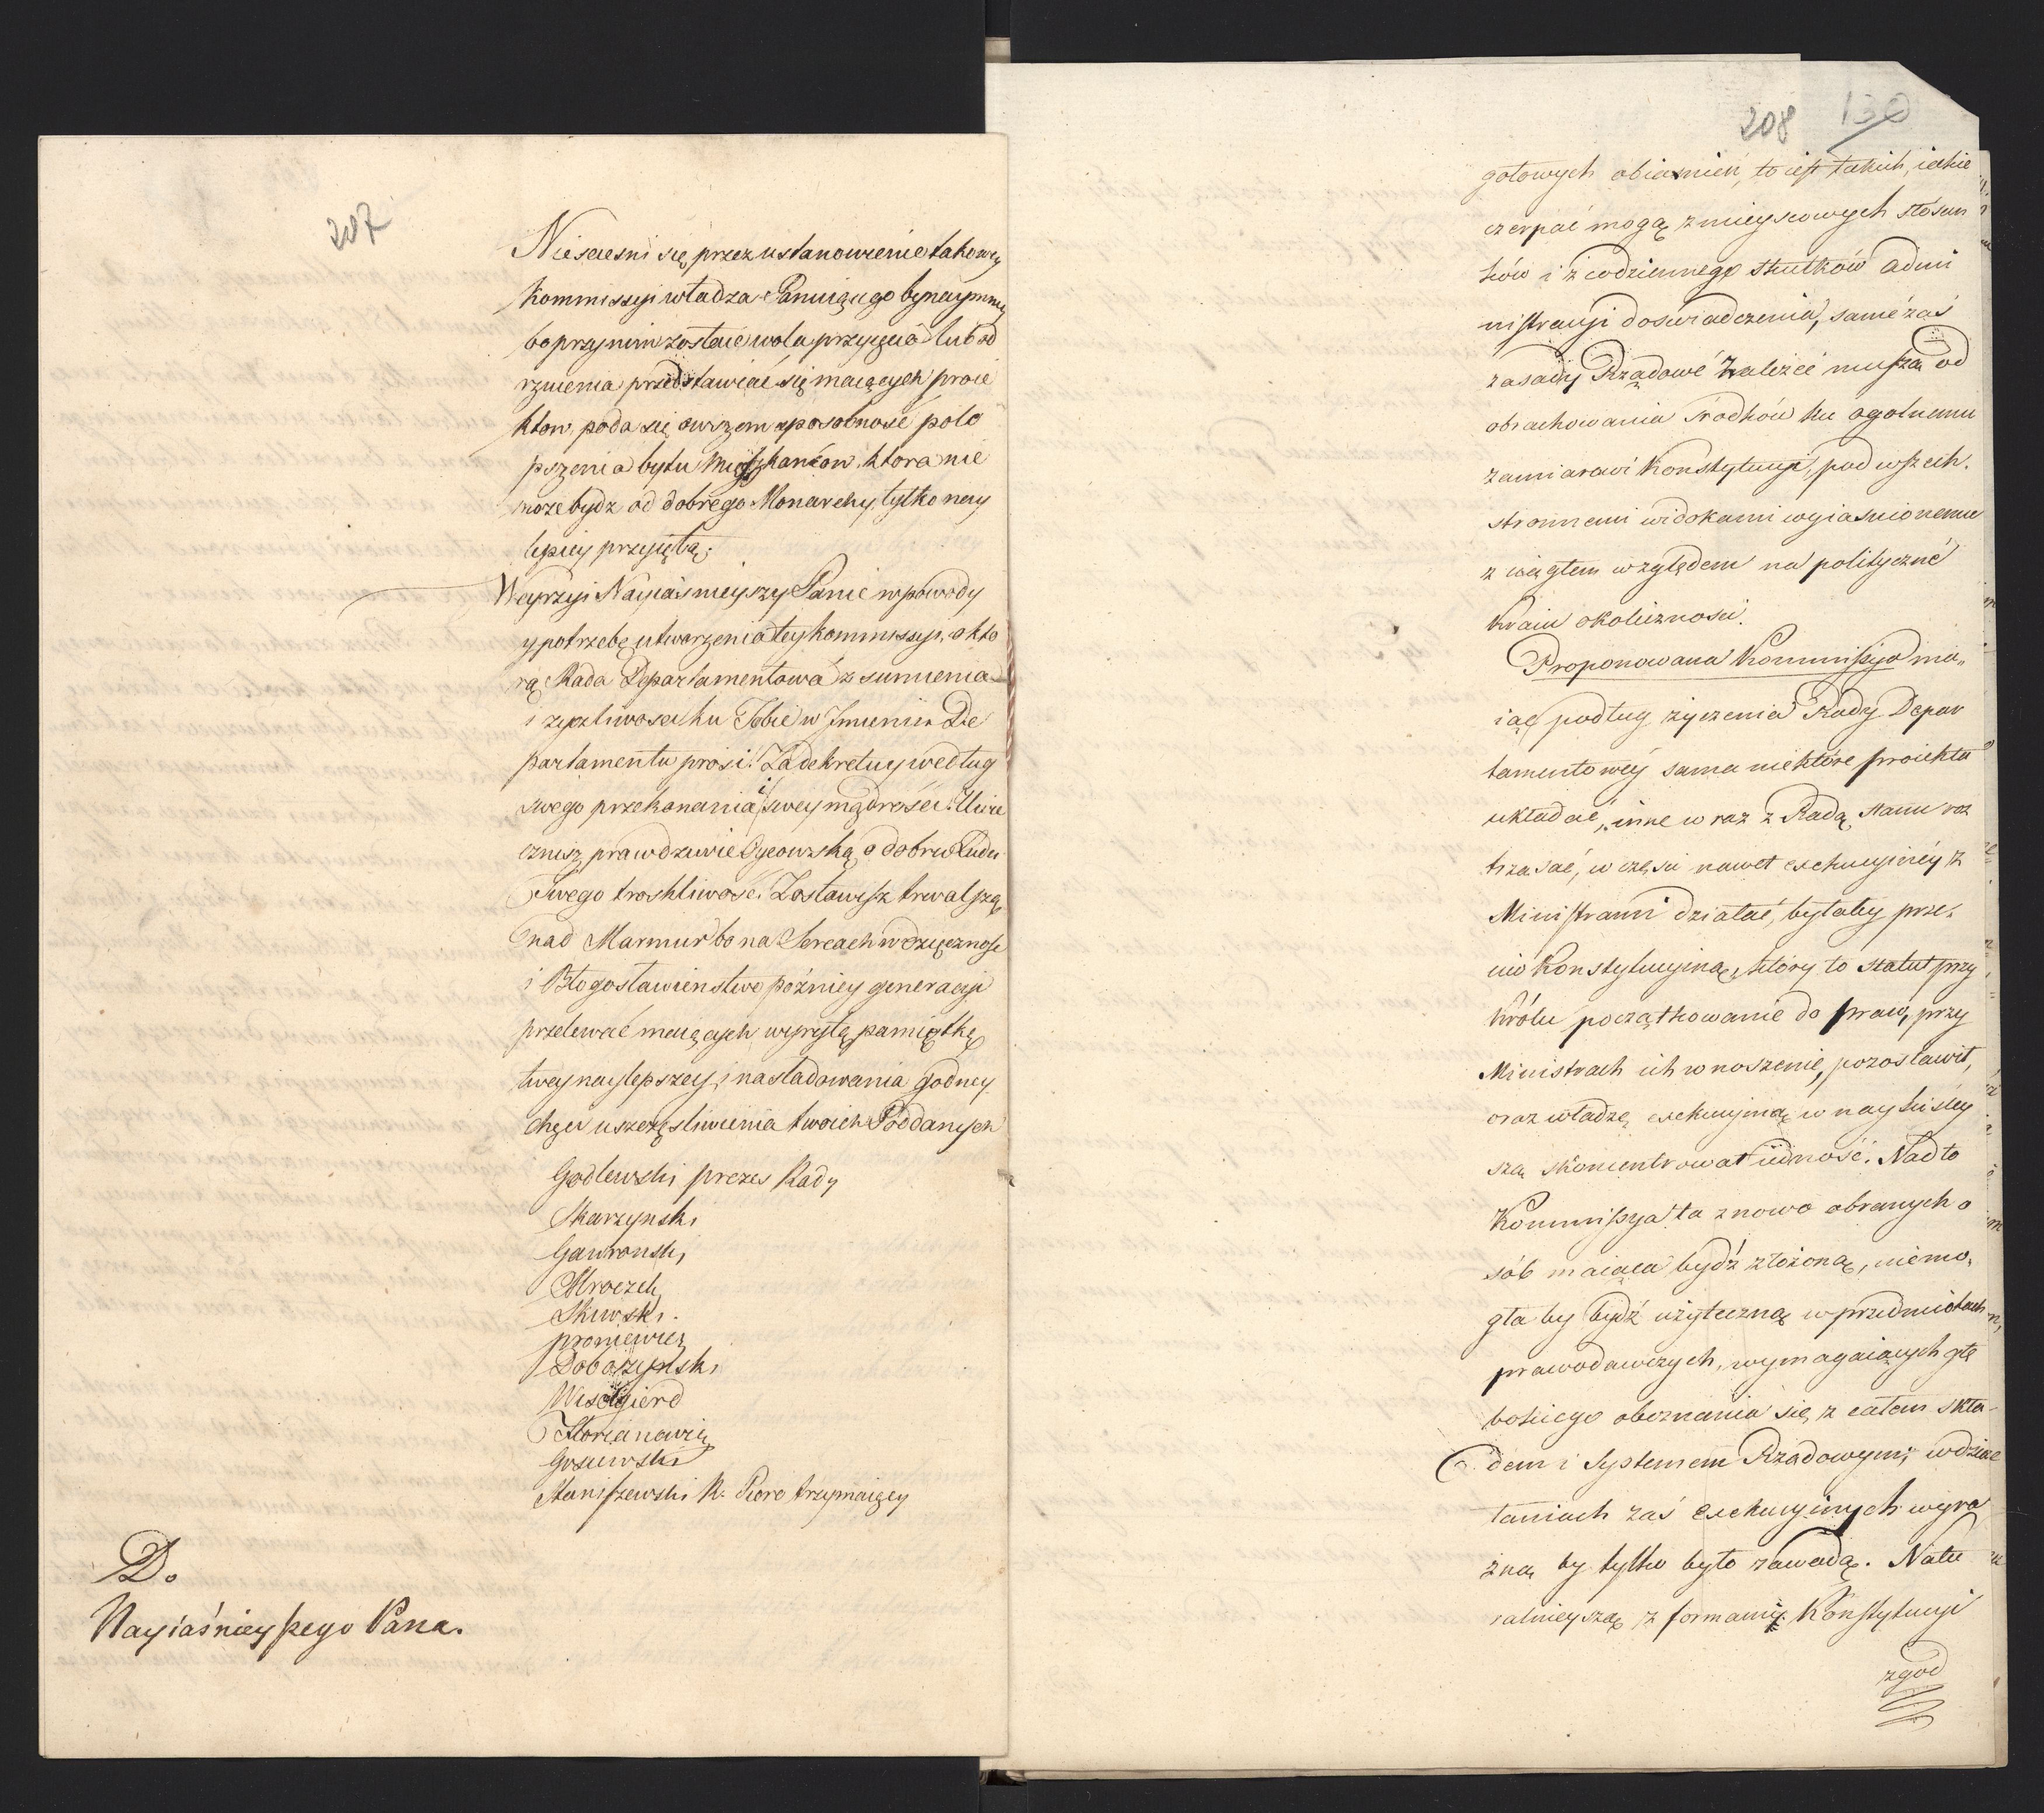 207
Niesciesni się przez ustanowienie takowey
Kommissyi władza Panuiącego bynaymniey
bo przy nim zostaie wola przyięcia lub od
rzucenia przedstawiać się maiących proie
któw, poda się owszem sposobność pole
pszenia bytu Mięszkańcow, ktora nie
może bydz od dobrego Monarchy tylko nay
lepiey przyiętą;
Weyrzyi Nayiaśnieyszy Panie w powody
y potrzebę utworzenia tey kommissyi, o kto
rą Rada Departamentowa z sumienia
i życzliwosci ku Tobie w Jmieniu De
partamentu prosi! Zadekretuy według
swego przekonania i swey mądrości! Uwie
cznisz prawdziwie Oycowską o dobro Ludu
Twego troskliwość. Zostawisz trwalszą
nad Marmur bo na Sercach wdzięcznosc
i Błogosławienstwo pózniey generacyi
przelewać maiących wyrytą pamiątkę
twey naylepszey, i nasladowania godney
chęci uszczęsliwienia twoich Poddanych
Godlewski prezes Rady
Skarzynski
Gawronski
Mroczek
Skiwski.
proniewicz
Dobozynski
Wisolgierd
Florianowicz
Gosiewski
Staniszewski R. Pioro trzymaiący
D.
Nayiaśnieyszego Pana.
208 130
gotowych obiasnień, to iest takich, iakie
czerpać mogą z mieyscowych stosun
ków i z codziennego skutków admi
nistracyi doswiadczenia, samé zaś
zasady Rządowé zależeć muszą od
obrachowania srodków ku ogolnemu
zamiarowi Konstytucyi, pod wszech.
stronnemi widokami wyiasnionemu
z ciągłem względem na polityczné
kraiu okoliczności.
Proponowana Kommissya ma„
iąc podług życzenia Rady Depar
tamentowéy sama niektóre proiekta
układać, inne wraz z Radą Stanu roz
trząsać, w części nawet exekucyinéy z
Ministrami działać, byłaby prze„
ciw Konstytucyiną, który to statut przy
Królu początkowanie do praw, przy
Ministrach ich wnoszenie, pozostawił,
oraz władzę exekucyiną w nayściśley
szą skoncentrował iedność. Nadto
Kommissya ta z nowo obranych o
sób maiąca bydź złożoną, niemo„
gła by bydź użyteczną w przedmiotach
prawodawczych, wymagaiących głę
bokiego obeznania się z całem skła
dem i Systemem Rządowym, w dzia
łaniach zaś exekucyinych wyra
źną by tylko było zawadą. Natu
ralnieyszą z formami Konstytucyi
zgod